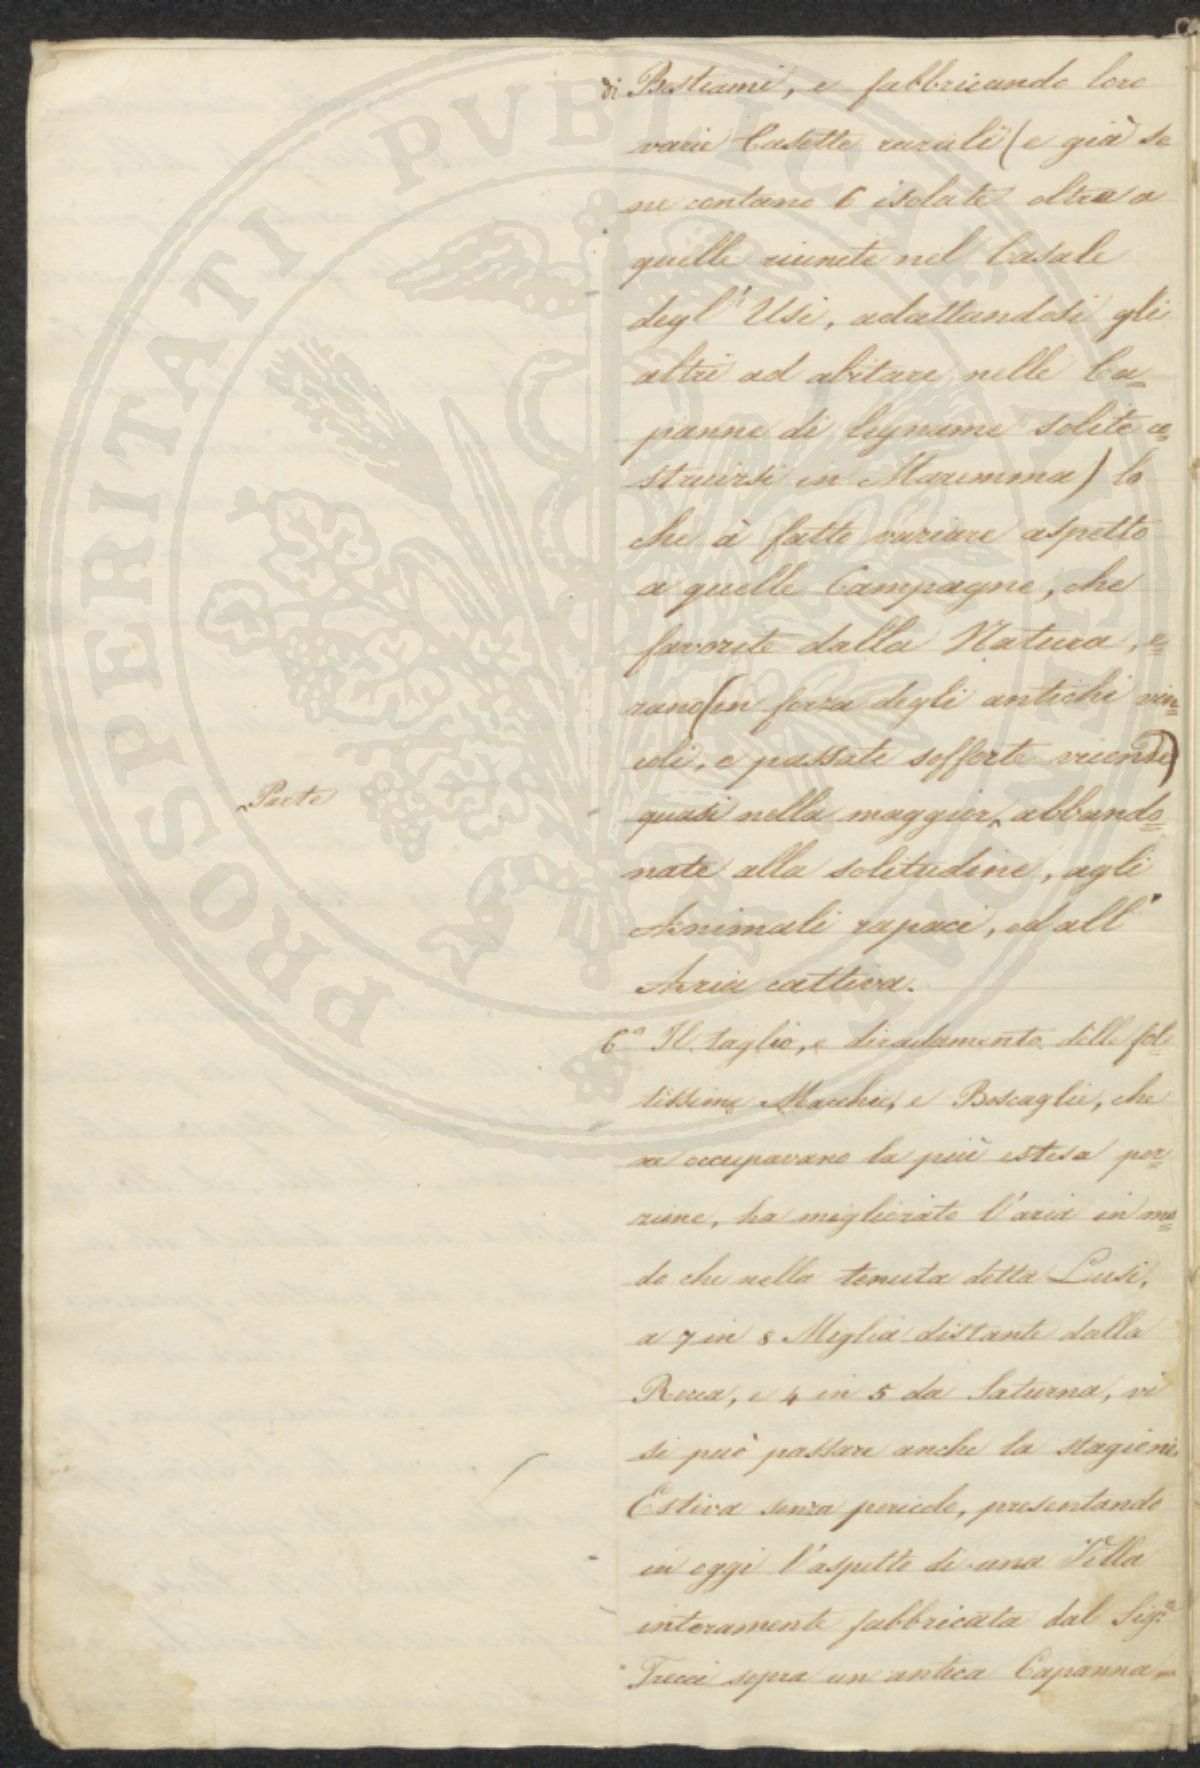 di Bestiami, e fabbricando loro
varie Casette rurali (e già se
ne contano 6 isolate oltre a
quelle riunite nel Casale
degl' Usi, adattandosi gli
altri ad abitare nelle Ca=
panne di legname solite co=
struirsi in Maremma) lo
che à fatto variare aspetto
a quelle Campagne, che
favorite dalla Natura, e=
rano (in forza degli antichi vin=
coli, e passate sofferte vicende)
^Parte
quasi nella maggior^ abbando=
nate alla solitudine, agli
Animali rapaci, ed all'
Aria cattiva.
6° Il taglio, e diradamento delle fol=
tissime Macchie, e Boscaglie, che
ne occupavano la più estesa por=
zione, ha migliorato l'aria in mo=
do che nella tenuta detta Lusi,
a 7 in 8 Miglia distante dalla
Rocca, e 4 in 5 da Saturna, vi
si può passare anche la stagione
Estiva senza pericolo, presentando
in oggi l'aspetto di una Villa
interamente fabbricata dal Sig.re
Tricci sopra un antica Capanna=
PROSPERITATI PUBLICAE